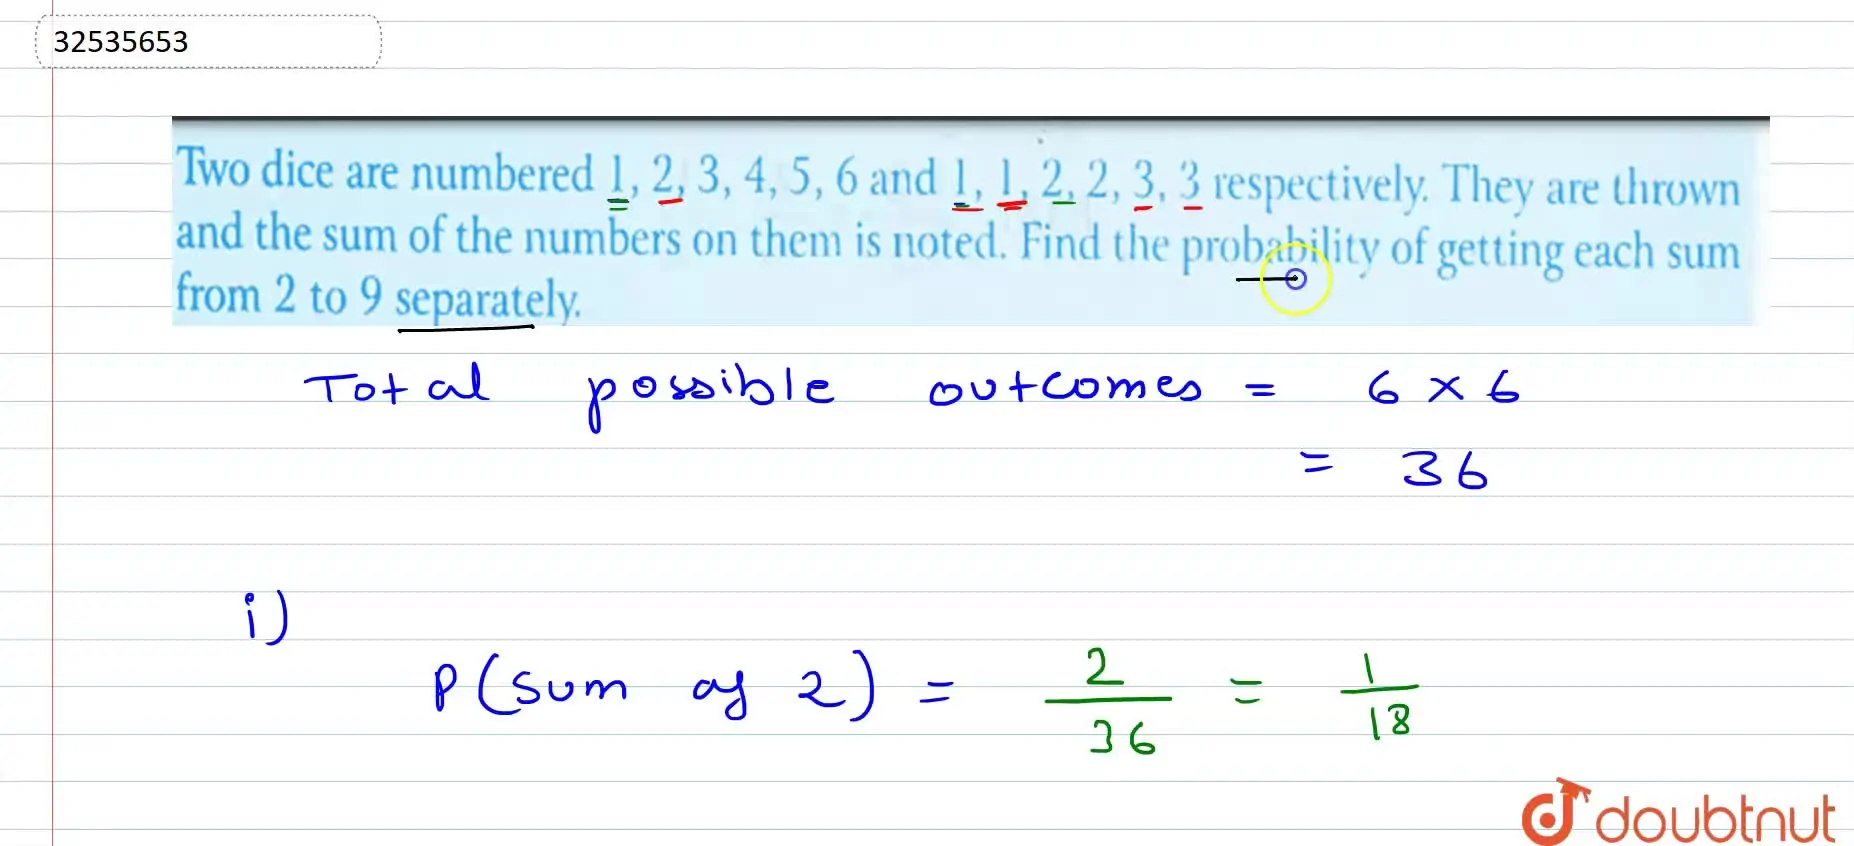 32535653
Two dice are numbered 1, 2, 3, 4, 5, 6 and 1, 1, 2, 2, 3, 3 respectively. They are thrown
and the sum of the numbers on them is noted. Find the probability of getting each sum
from 2 to 9 separately.
Total possible outcomes = 6 × 6
= 36
i)
P(sum of 2) = 2/36 = 1/18
doubtnut